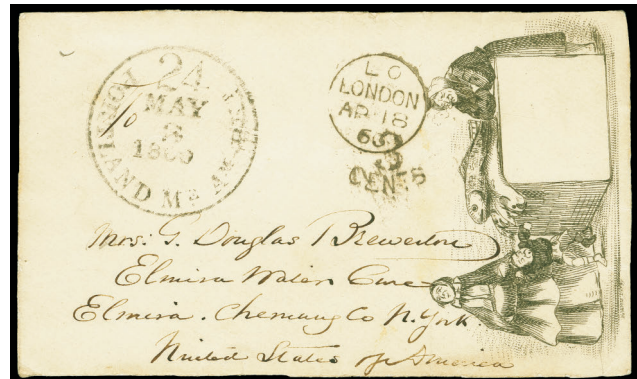 24
MAY
3
1860
PORTLAND ME AM. PKT.
To
LO
LONDON
AP 18
60
3
CENTS
Mrs. G. Douglas Brewerton
Elmira Water Cure
Elmira. Chemung Co N. York.
United States of America